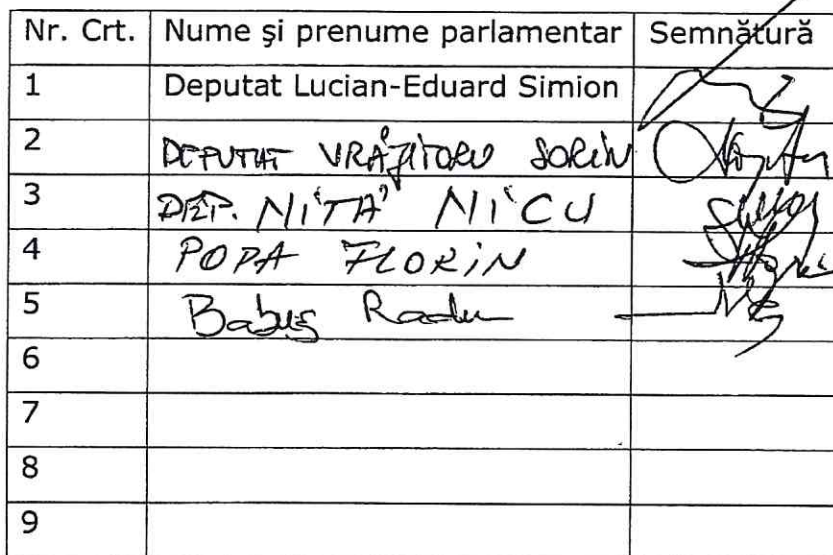 Nr. Crt. Nume şi prenume parlamentar Semnătură
1 Deputat Lucian-Eduard Simion
2 DEPUTAT VRĂJITORU SORIN
3 DEP. NIȚĂ NICU
4 POPA FLORIN
5 Babuș Radu
6
7
8
9